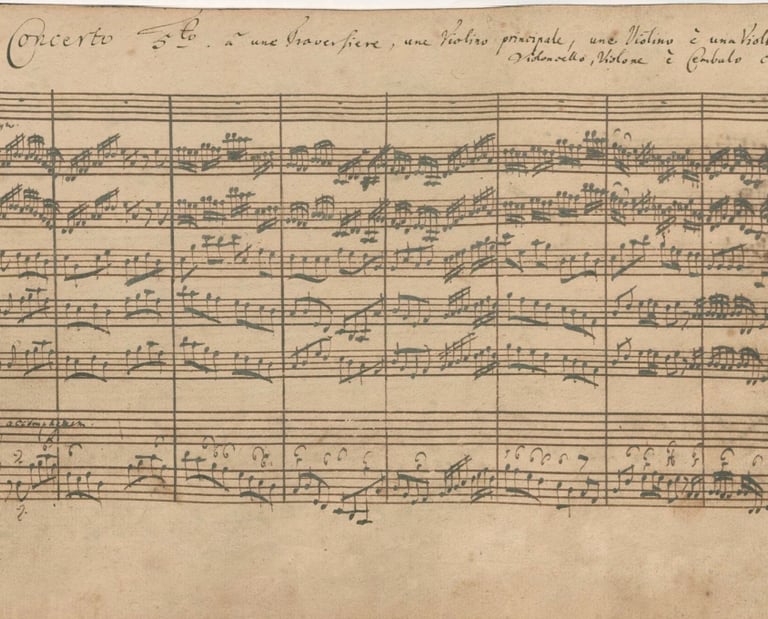 Concerto 5to. a une Traversiere, une Violino principale, une Violino è una Viol
Violoncello, Violone è Cembalo c
accompagnam.